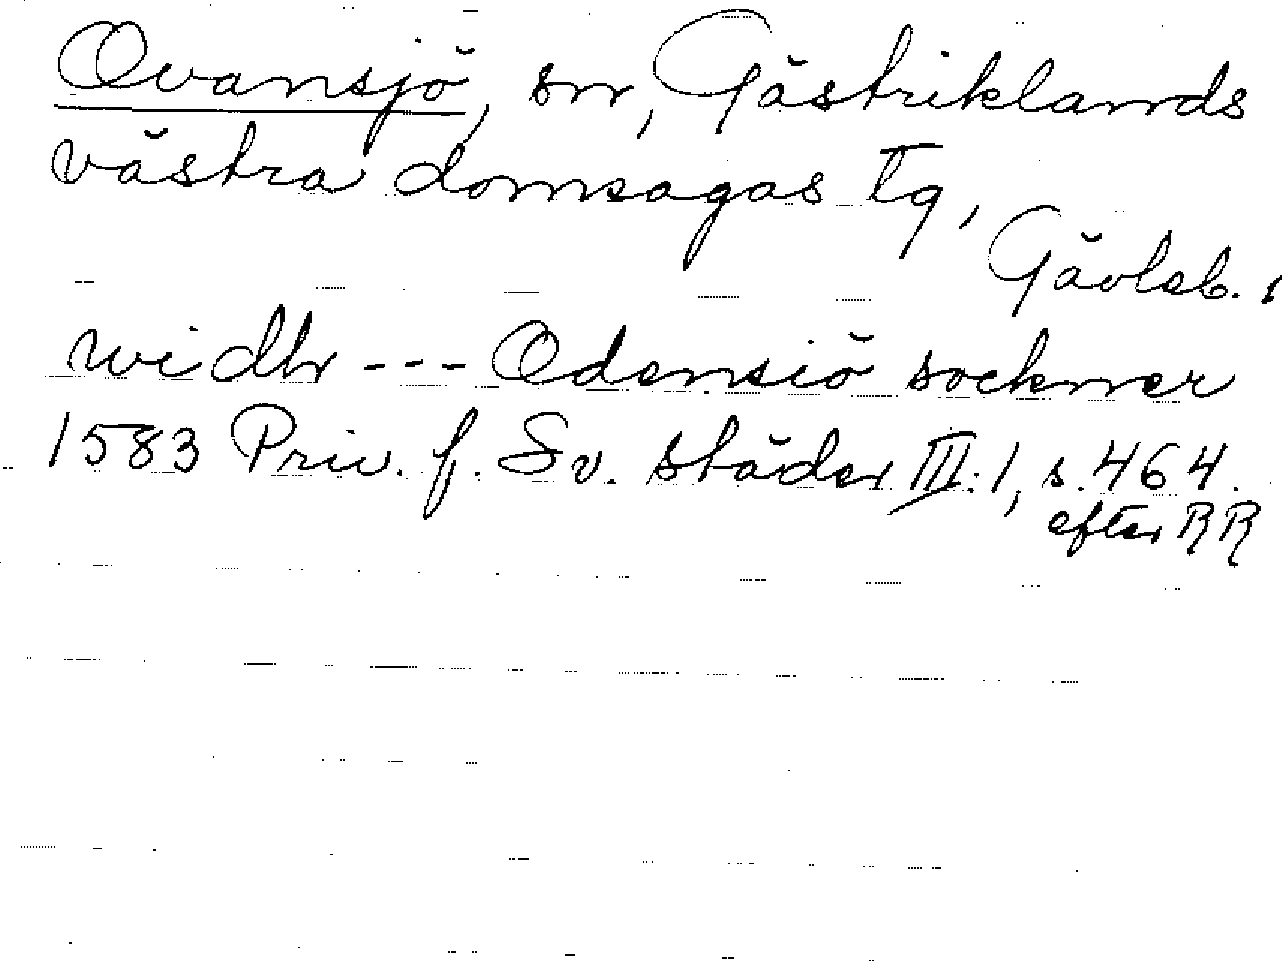 Ovansjö, sn, Gästriklands
västra domsagas tg,
Gävleb. l
widh --- Odensiö sockner
1583 Priv. f. Sv. städer III:1, s. 464.
efter RR